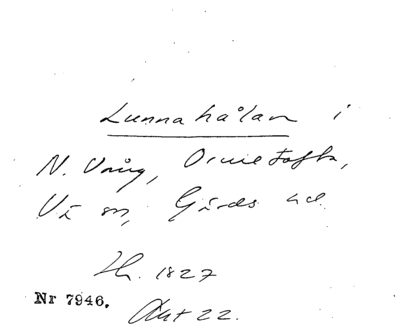 Lunnahålan i
N. Vång, Ormetofta,
Vä sn, Gärds hd.
Th. 1827
Nr 7946. Akt 22.